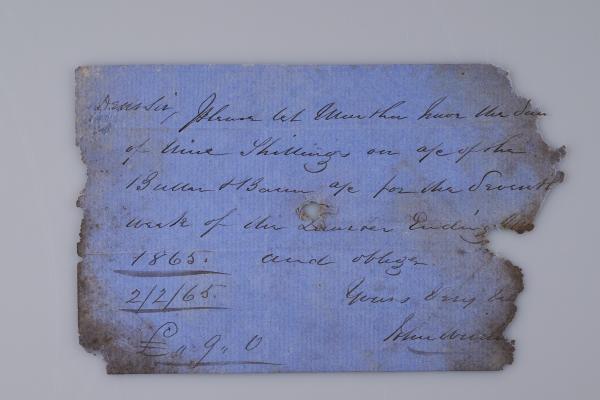 Dear Sir, Please let Martha have the Sum
of Nine Shillings on a/c of the
Butter & Bacon a/c for the Seventh
week of the Quarter Ending
1865. and oblige
2/2/65. Yours Very
£ „ 9 „ 0 John